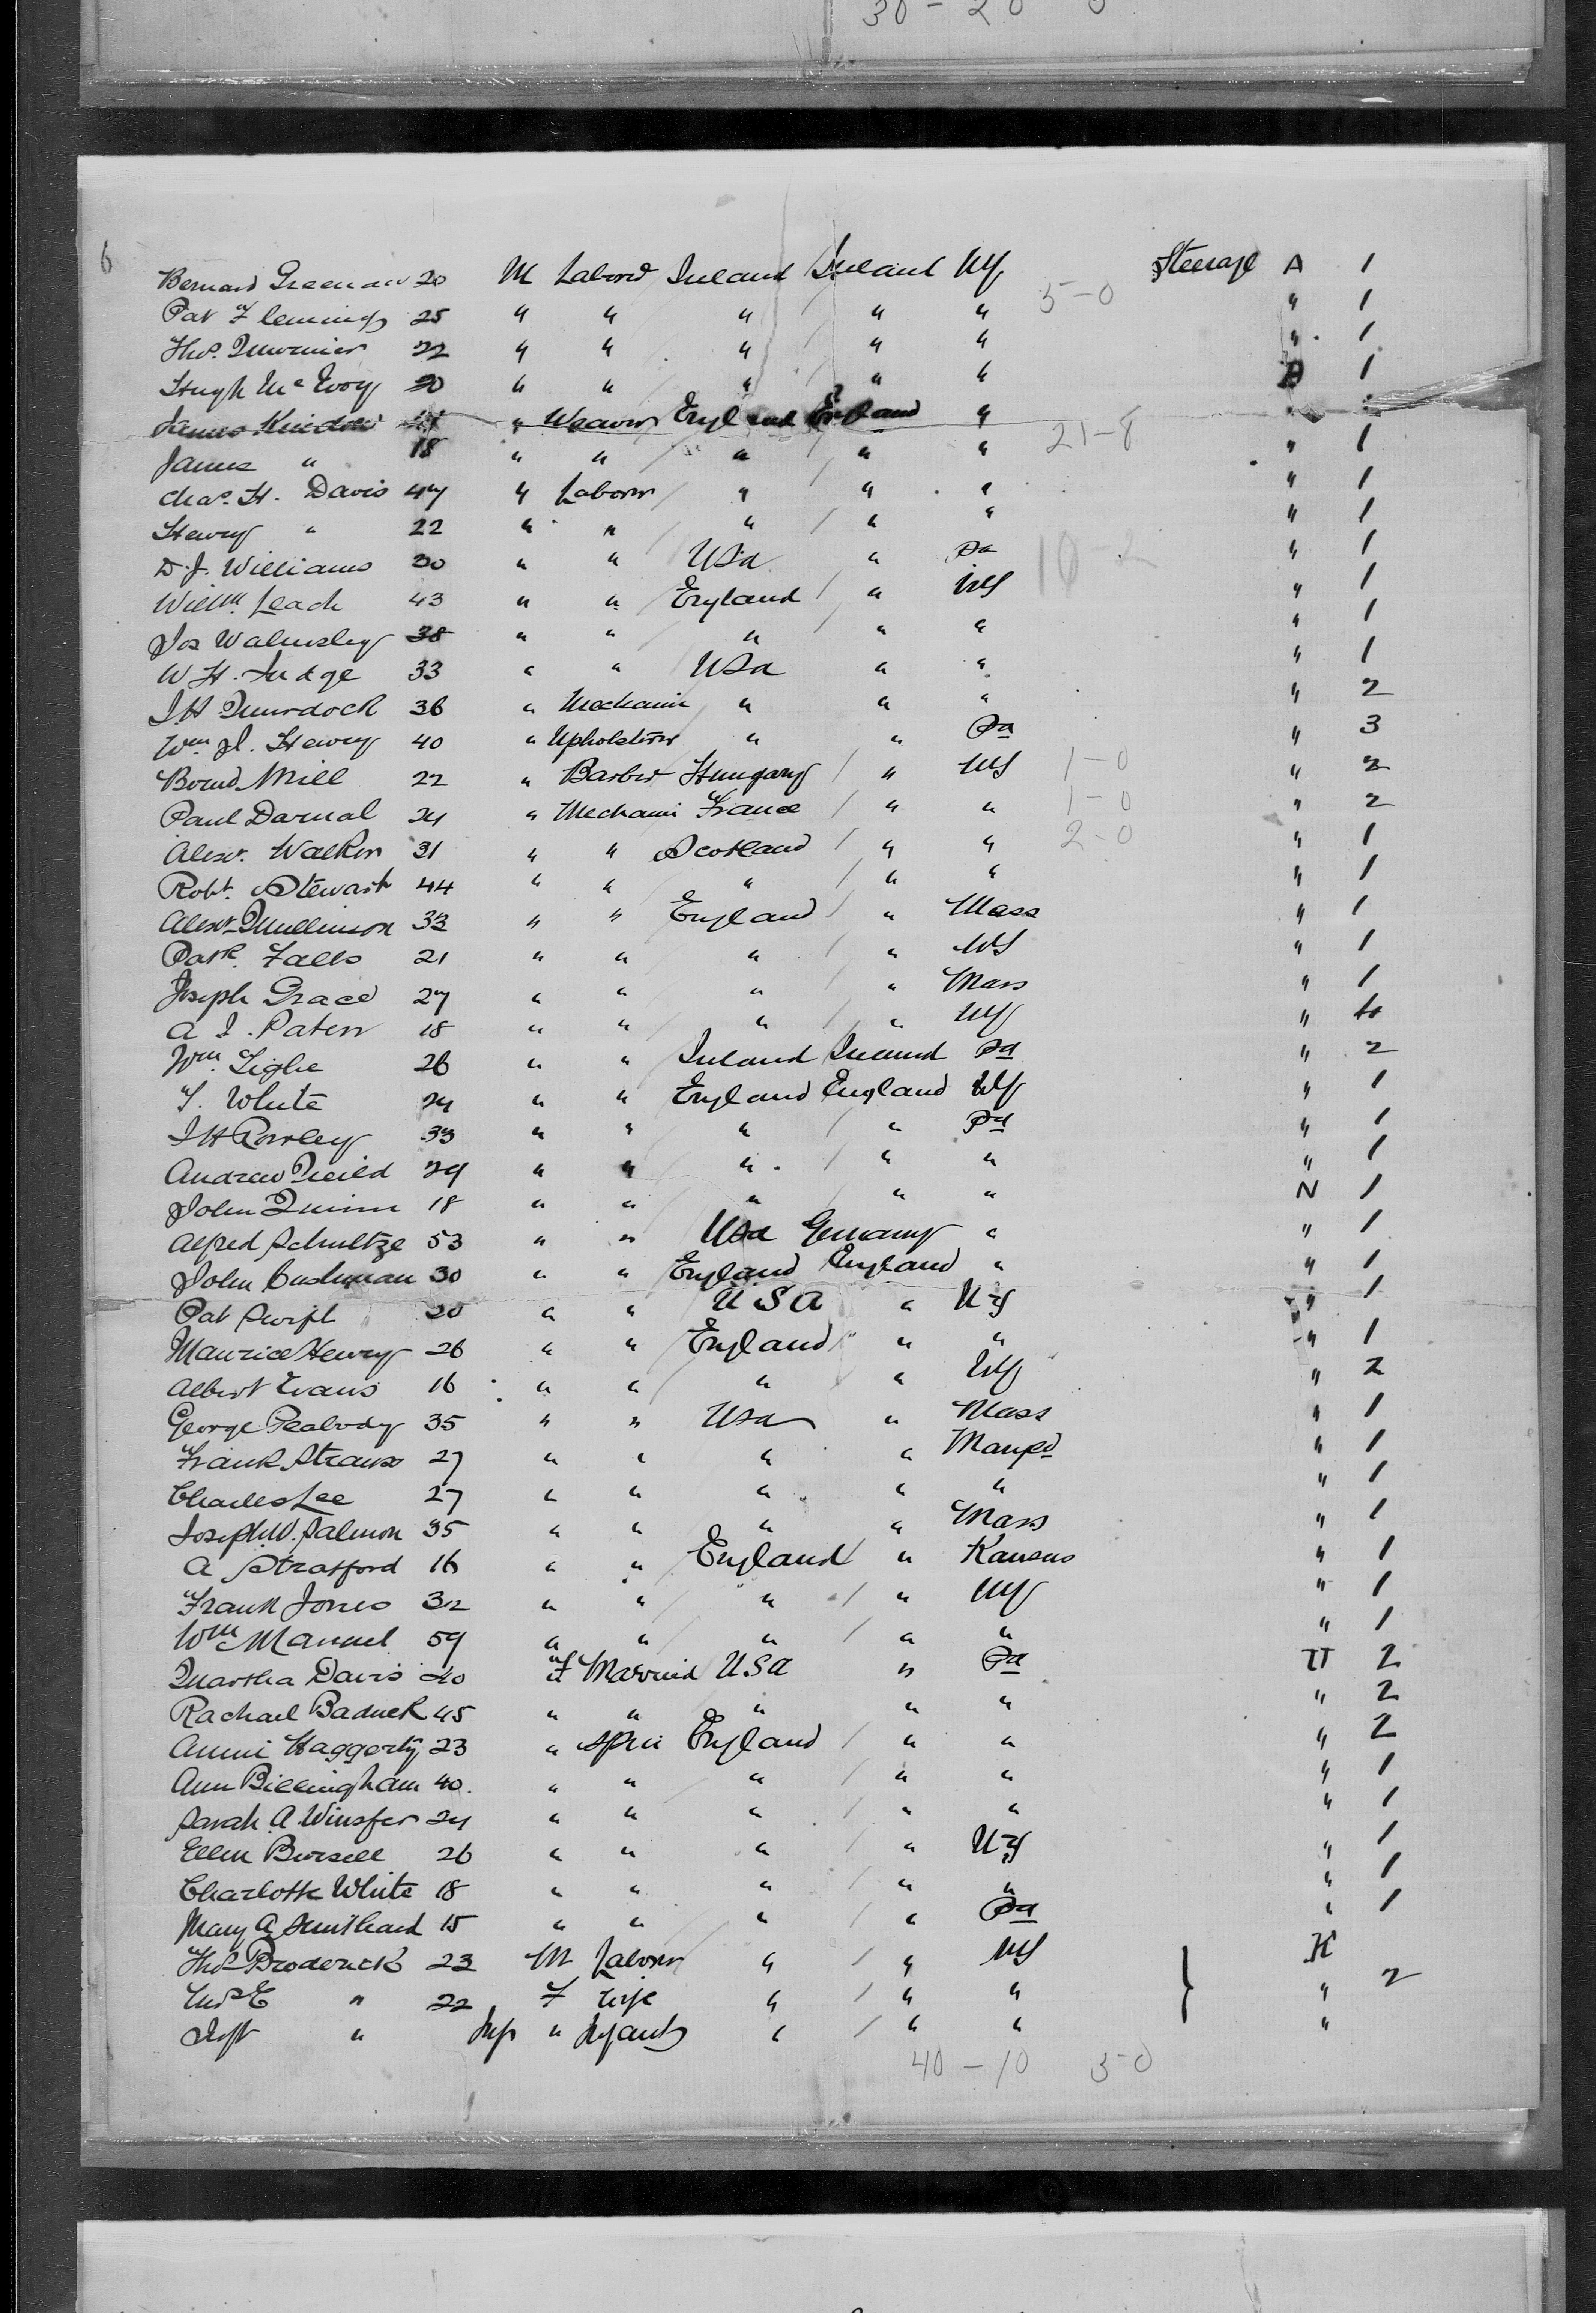 30 - 20 0
6
Bernard Greenan 20 M Labord Ireland Ireland NY Steerage A 1
Pat Flemings 25 " " " " " 5-0 " 1
Thos. Murnier 22 " " " " " " 1
Hugh McEvoy 20 " " " " " A 1
James 41 " Weaver England England "
James " 18 " " " " " 21-8 " 1
Chas. H. Davis 47 " Laborer " " " " 1
Henry " 22 " " " " " " 1
D. J. Williams 30 " " USA " Pa 10-2 " 1
Willm. Leach 43 " " England " NY " 1
Jos Walmsley 38 " " " " " " 1
W H. Judge 33 " " USA " " " 1
J H Murdock 36 " Mechanic " " " " 2
Wm J. Henry 40 " Upholsterer " " Pa " 3
Bernd Mill 22 " Barber Hungary " NY 1-0 " 2
Paul Darnal 24 " Mechani France " " 1-0 " 2
Alexr. Walker 31 " " Scotland " " 2-0 " 1
Robt. Stewart 44 " " " " " " 1
Alexr. Mullinson 33 " " England " Mass " 1
Patk. Falls 21 " " " " NY " 1
Joseph Grace 27 " " " " Mass " 1
A. J. Paten 18 " " " " NY " 4
Wm. Tighe 26 " " Ireland Ireland Pa " 2
T. White 24 " " England England NY " 1
J H Rowley 33 " " " " Pa " 1
Andrew Neild 29 " " " " " " 1
John Quinn 18 " " " " " N 1
Alfred Schultze 53 " " USA Germany " " 1
John Cushman 30 " " England England " " 1
Pat Swift 20 " " USA " NY " 1
Maurice Henry 26 " " England " " " 1
Albert Evans 16 " " " " NY " 2
George Peabody 35 " " USA " Mass " 1
Frank Strauss 27 " " " " " 1
Charles Lee 27 " " " " " " 1
Joseph W. Salmon 35 " " " " Mass " 1
A Stratford 16 " " England " Kansas " 1
Frank Jones 32 " " " " NY " 1
Wm Manuel 59 " " " " " " 1
Martha Davis 40 F Married USA " Pa U 2
Rachael Badnek 45 " " " " " " 2
Annie Haggerty 23 " Spin England " " " 2
Ann Billingham 40 " " " " " " 1
Sarah A Winsfer 24 " " " " " " 1
Ellen Bursell 26 " " " " NY " 1
Charlotte White 18 " " " " " " 1
Mary A 15 " " " " Pa " 1
Thos Broderick 23 M Laborer " " NY K
Mrs E " 22 F Wife " " " " 2
" Inf " Infants " " " "
40 - 10 3-0